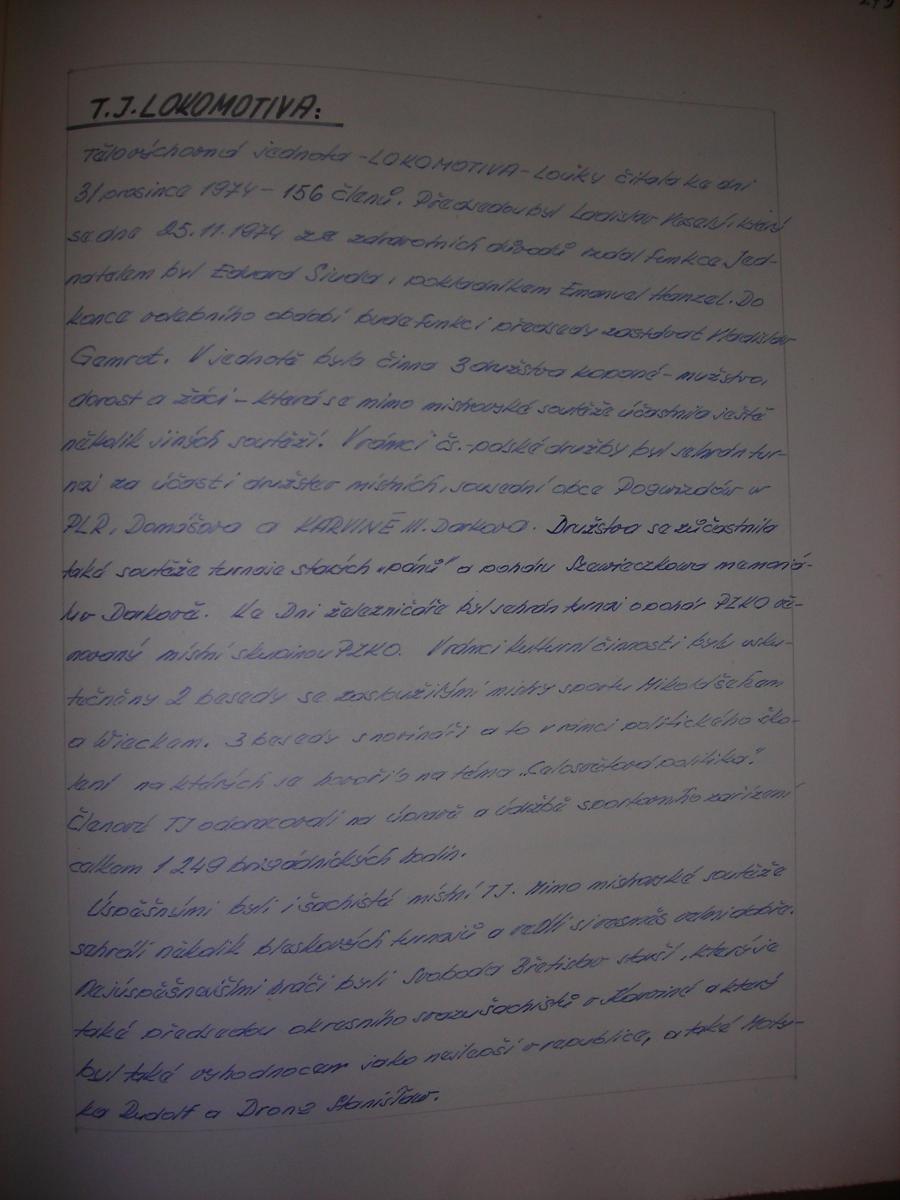 T.J. LOKOMOTIVA:
Tělovýchovná jednota - LOKOMOTIVA - Louky čítala ke dni
31 prosince 1974 - 156 členů. Předsedou byl Ladislav Veselý, který
se dne 25.11.1974 ze zdravotních důvodů vzdal funkce. Jed-
natelem byl Eduard Siuda, pokladníkem Emanuel Hanzel. Do
konce volebního období bude funkci předsedy zastávat Vladislav
Gamrot. V jednotě byla činna 3 družstva kopané - mužstvo,
dorost a žáci - která se mimo mistrovské soutěže účastnila ještě
několik jiných soutěží. V rámci čs.-polské družby byl sehrán tur-
naj za účasti družstev místních, sousední obce Pogwizdów v
PLR, Domášova a KARVINÉ III. Darkova. Družstva se zúčastnila
také soutěže turnaje starých "pánů" o pohár Szewieczkowa memoriá-
lu v Darkově. Ke Dni železničáře byl sehrán turnaj o pohár PZKO vě-
novaný místní skupinou PZKO. V rámci kulturní činnosti byly usku-
tečněny 2 besedy se zasloužilými mistry sportu Mikolášekem
a Wieckem. 3 besedy s novináři a to v rámci politického ško-
lení na kterých se hovořilo na téma „Celosvětová politika".
Členové TJ odpracovali na úpravě a údržbě sportovního zařízení
celkem 1 249 brigádnických hodin.
Úspěšnými byli i šachisté místní TJ. Mimo mistrovské soutěže
sehráli několik bleskových turnajů a vedli si vesměs velmi dobře.
Nejúspěšnějšími hráči byli Svoboda Břetislav starší, který je
také předsedou okresního svazu šachistů v Karviné a který
byl také vyhodnocen jako nejlepší v republice, a také Moty-
ka Rudolf a Drong Stanisław.